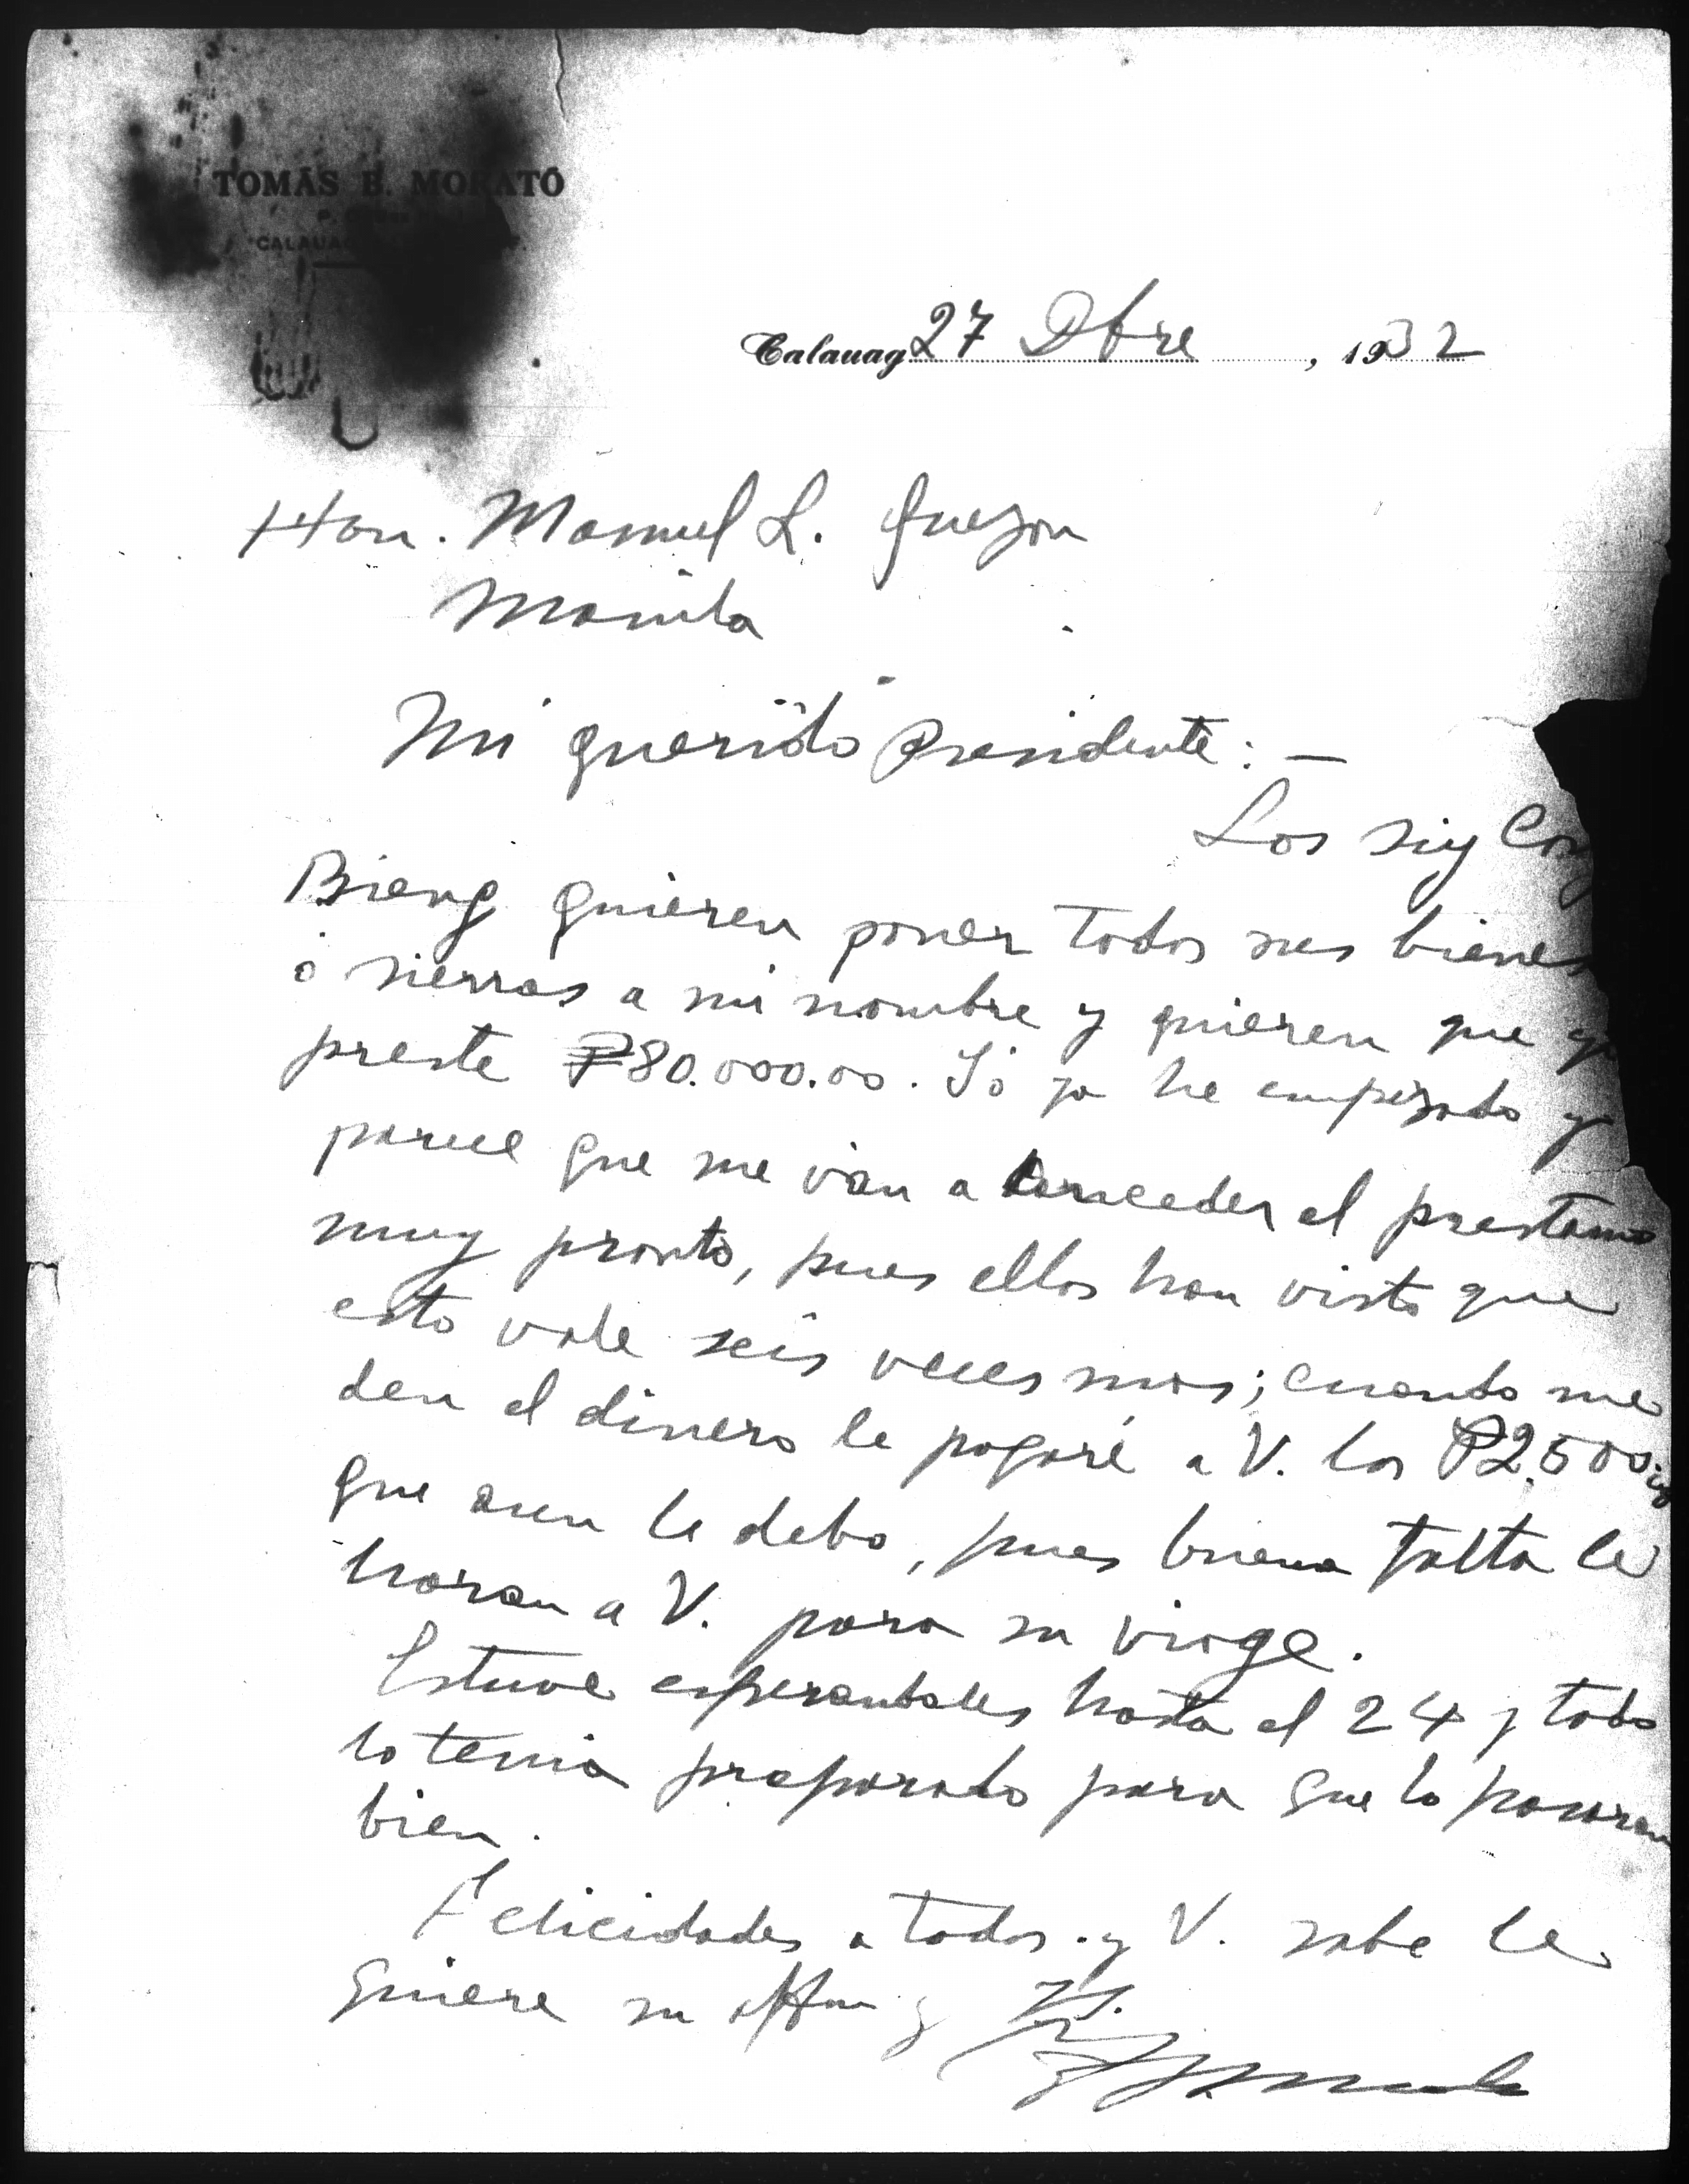 TOMÁS B. MORATÓ
CALAUAG
Calauag 27 Dbre, 1932
Hon. Manuel L. Quezon
Manila
Mi querido Presidente: —
Los Siy Cong
Bieng quieren poner todos sus bienes
ó sierras a mi nombre y quieren que yo
preste ₱80.000.00. Yó ya he empezado y
parece que me van a conceder el prestamo
muy pronto, pues ellos han visto que
esto vale seis veces mas; cuando me
den el dinero le pagaré a V. los ₱2.500.00
que aun le debo, pues buena falta le
haran a V. para su viage.
Estuve esperandoles hasta el 24 y todo
lo tenia preparado para que lo pasaran
bien.
Felicidades a todos y V. sabe le
quiere su affmo y